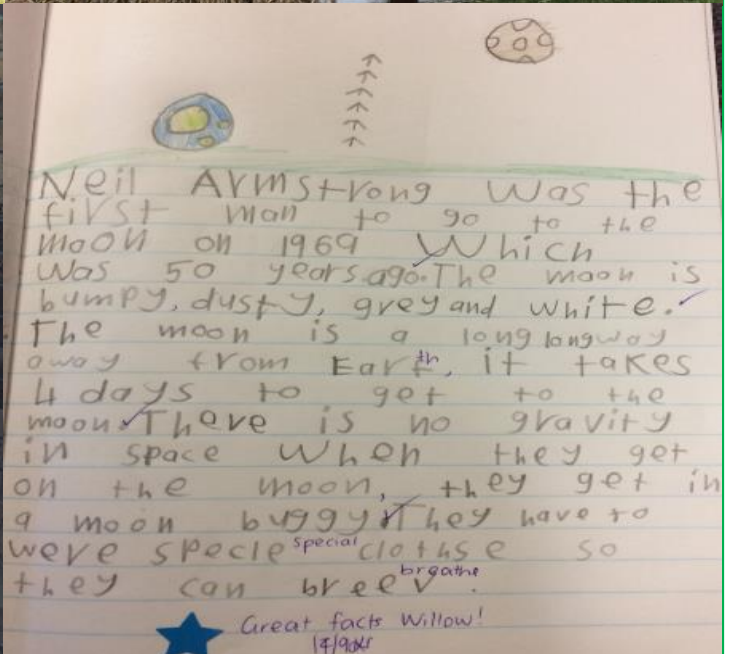 Neil Armstrong was the
first man to go to the
moon on 1969 Which
was 50 years ago. The moon is
bumpy, dusty, grey and white.
The moon is a long long way
away from Earth, it takes
4 days to get to the
moon. There is no gravity
in space when they get
on the moon, they get in
a moon buggy. They have to
were specle special clothse so
they can breev breathe.
Great facts Willow!